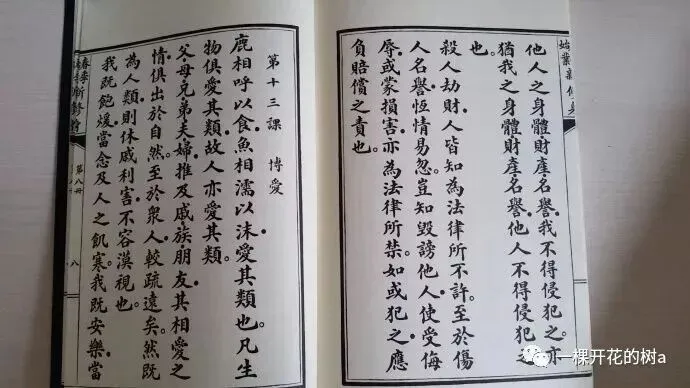 他人之身體財產名譽。我不得侵犯之。亦
猶我之身體財產名譽。他人不得侵犯之
也。
殺人劫財。人皆知為法律所不許。至於傷
人名譽。恆情易忽。豈知毀謗他人。使受侮
辱。或蒙損害。亦為法律所禁。如或犯之。應
負賠償之責也。
第十三課 博愛
鹿相呼以食。魚相濡以沫。愛其類也。凡生
物俱愛其類。故人亦愛其類。
父母兄弟夫婦。推及戚族朋友。其相愛之
情。俱出於自然。至於衆人。較疏遠矣。然既
為人類。則休戚利害。不容漠視也。
我既飽煖。當念及人之飢寒。我既安樂。當
第八册
八
一棵开花的树a